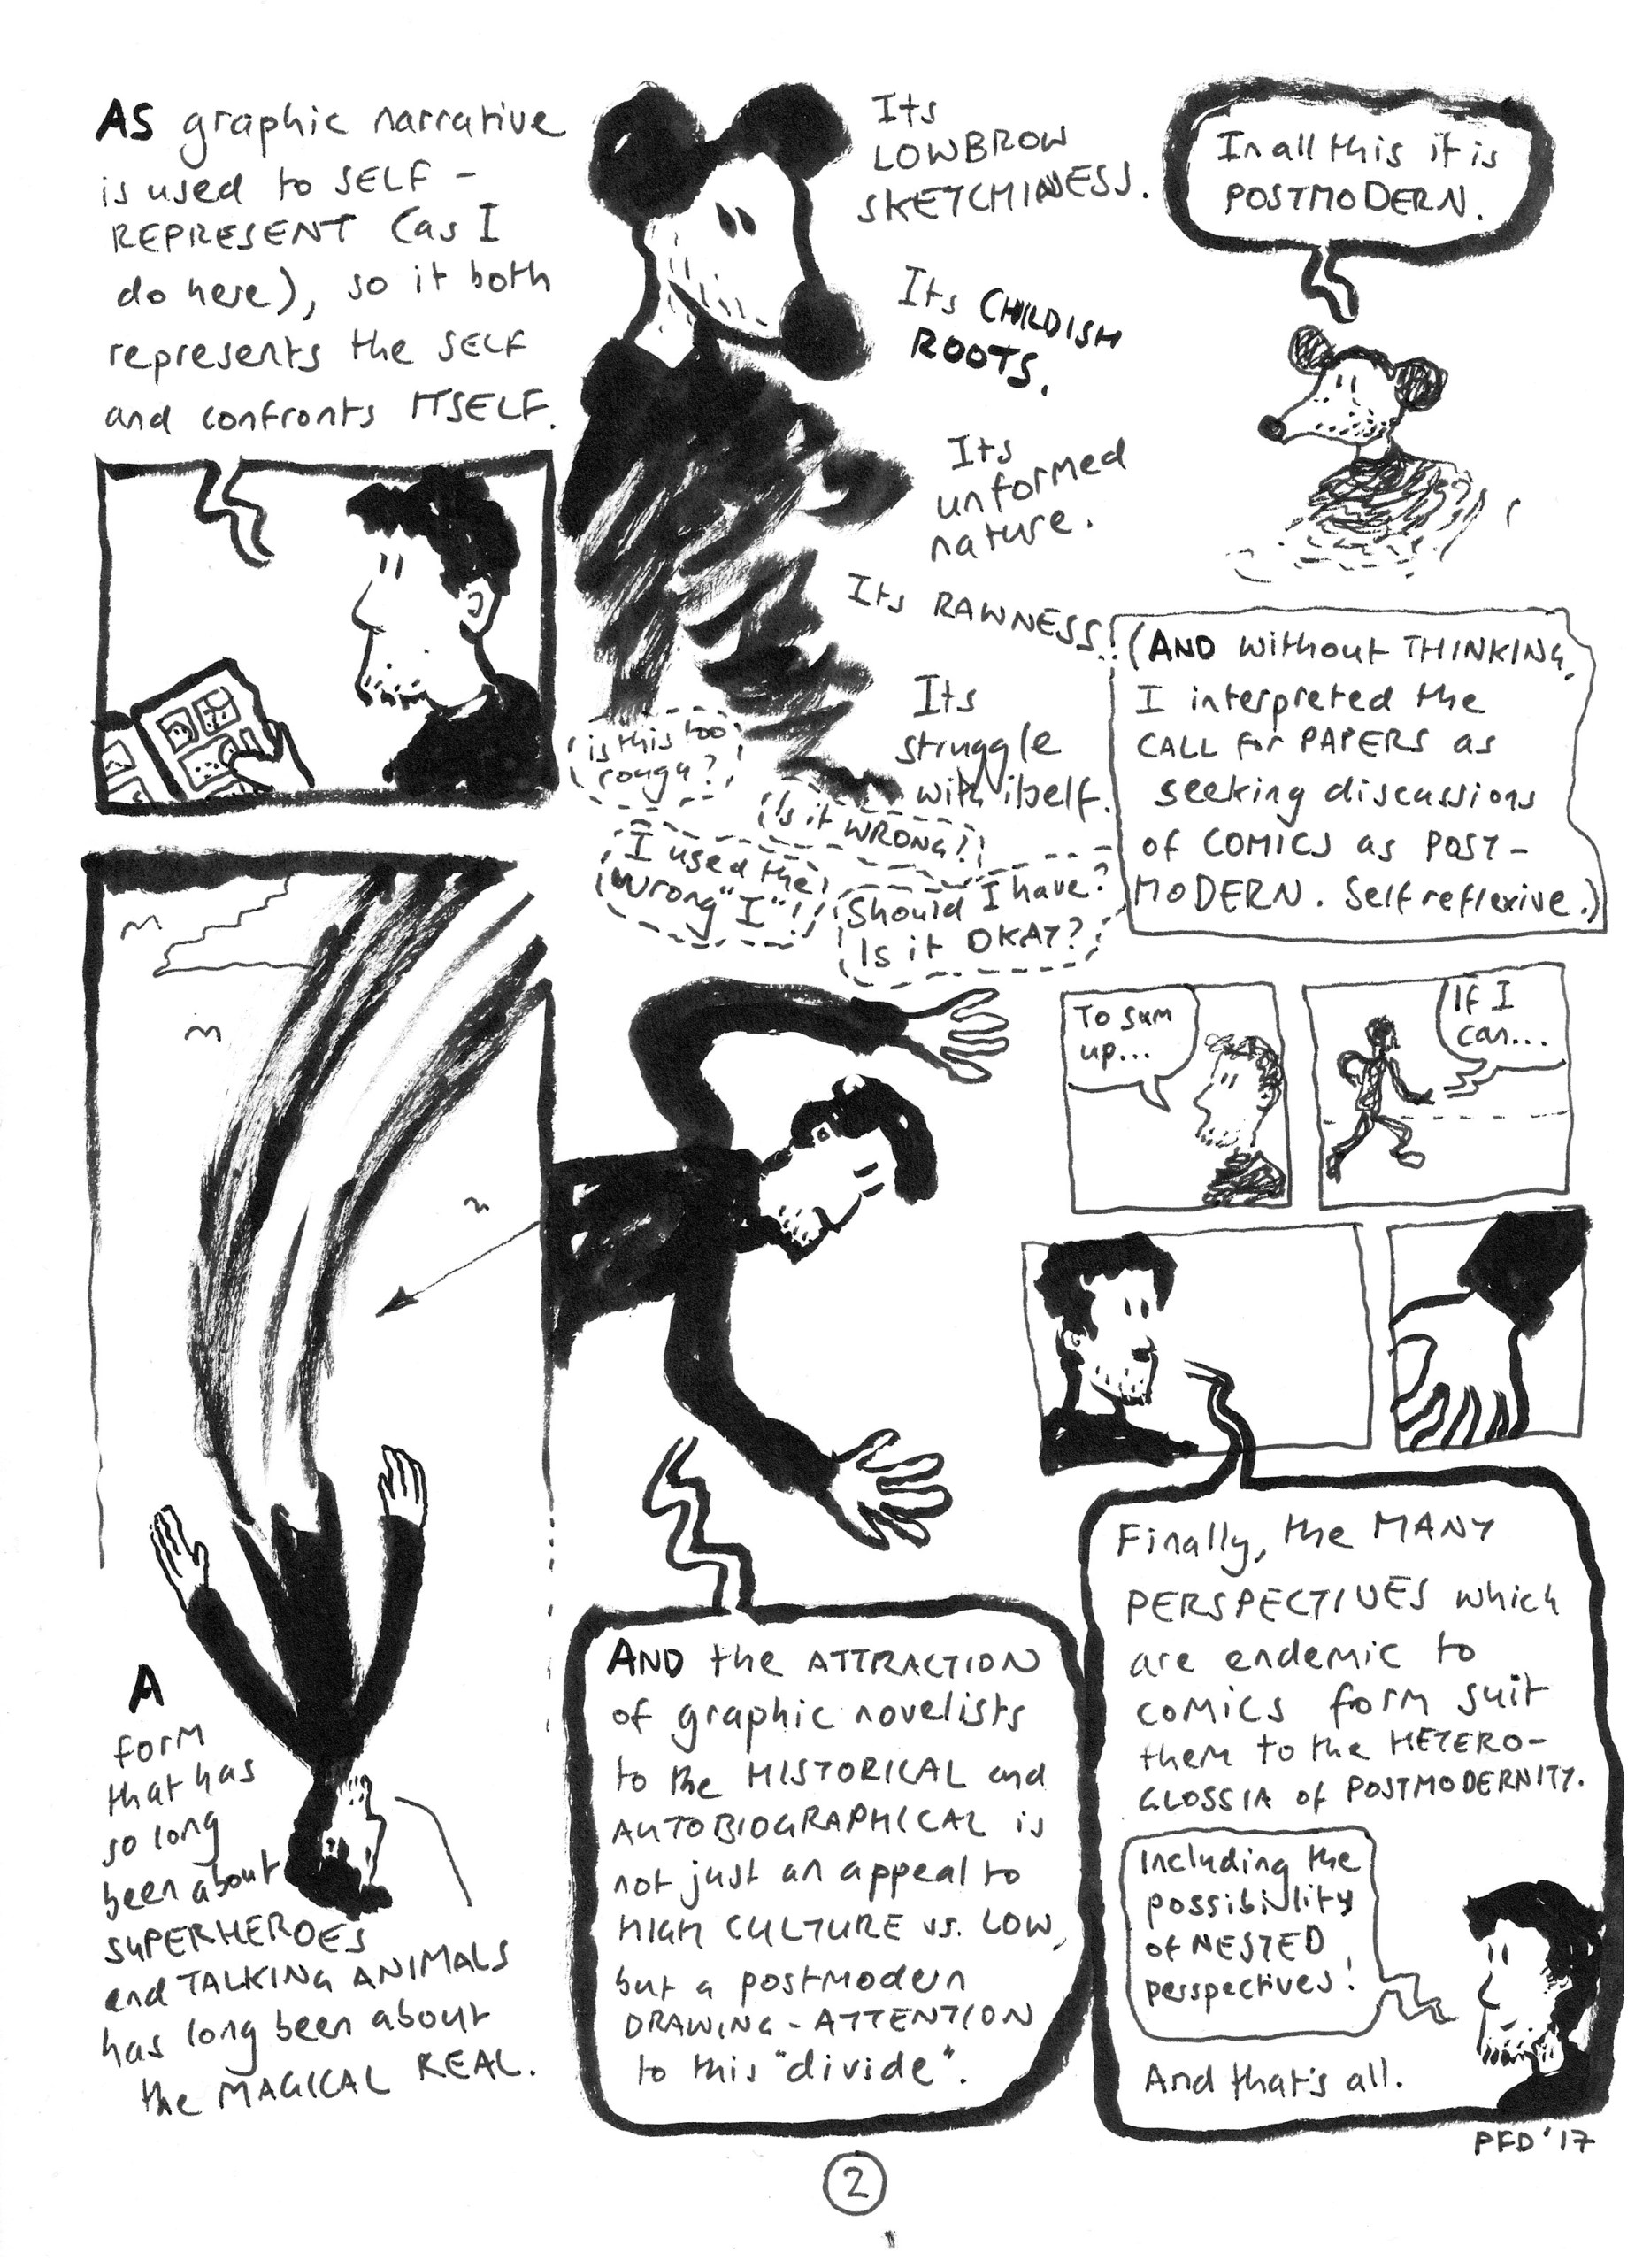 AS graphic narrative
is used to SELF-
REPRESENT (as I
do here), so it both
represents the SELF
and confronts ITSELF.
Its
LOWBROW
SKETCHINESS.
Its CHILDISH
ROOTS.
Its
unformed
nature.
Its RAWNESS!
Its
struggle
with itself.
is this too
rough?
Is it WRONG?
I used the
wrong "I"!
Should I have?
Is it OKAY?
In all this it is
POSTMODERN.
(AND without THINKING,
I interpreted the
CALL for PAPERS as
seeking discussions
of COMICS as POST-
MODERN. Self reflexive.)
A
form
that has
so long
been about
SUPERHEROES
and TALKING ANIMALS
has long been about
the MAGICAL REAL.
AND the ATTRACTION
of graphic novelists
to the HISTORICAL and
AUTOBIOGRAPHICAL is
not just an appeal to
HIGH CULTURE vs. LOW,
but a postmodern
DRAWING-ATTENTION
to this "divide".
To sum
up...
If I
can...
Finally, the MANY
PERSPECTIVES which
are endemic to
comics form suit
them to the HETERO-
GLOSSIA of POSTMODERNITY.
Including the
possibility
of NESTED
perspectives!
And that's all.
PFD '17
2